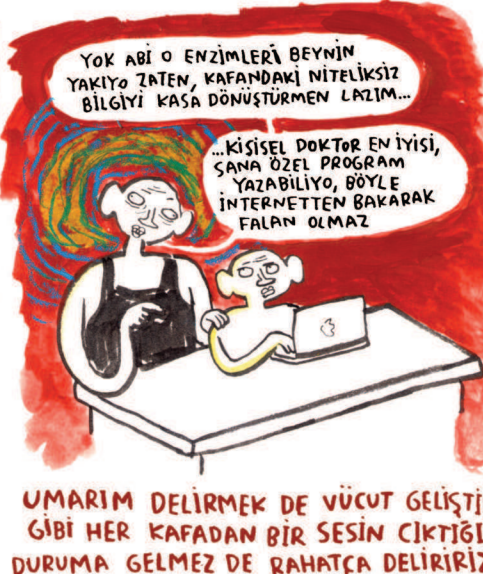 YOK ABİ O ENZİMLERİ BEYNİN
YAKIYO ZATEN, KAFANDAKİ NİTELİKSİZ
BİLGİYİ KASA DÖNÜŞTÜRMEN LAZIM...
...KİŞİSEL DOKTOR EN İYİSİ,
SANA ÖZEL PROGRAM
YAZABİLİYO, BÖYLE
İNTERNETTEN BAKARAK
FALAN OLMAZ
UMARIM DELİRMEK DE VÜCUT GELİŞTİ
GİBİ HER KAFADAN BİR SESİN ÇIKTIĞI
DURUMA GELMEZ DE RAHATÇA DELİRİRİZ